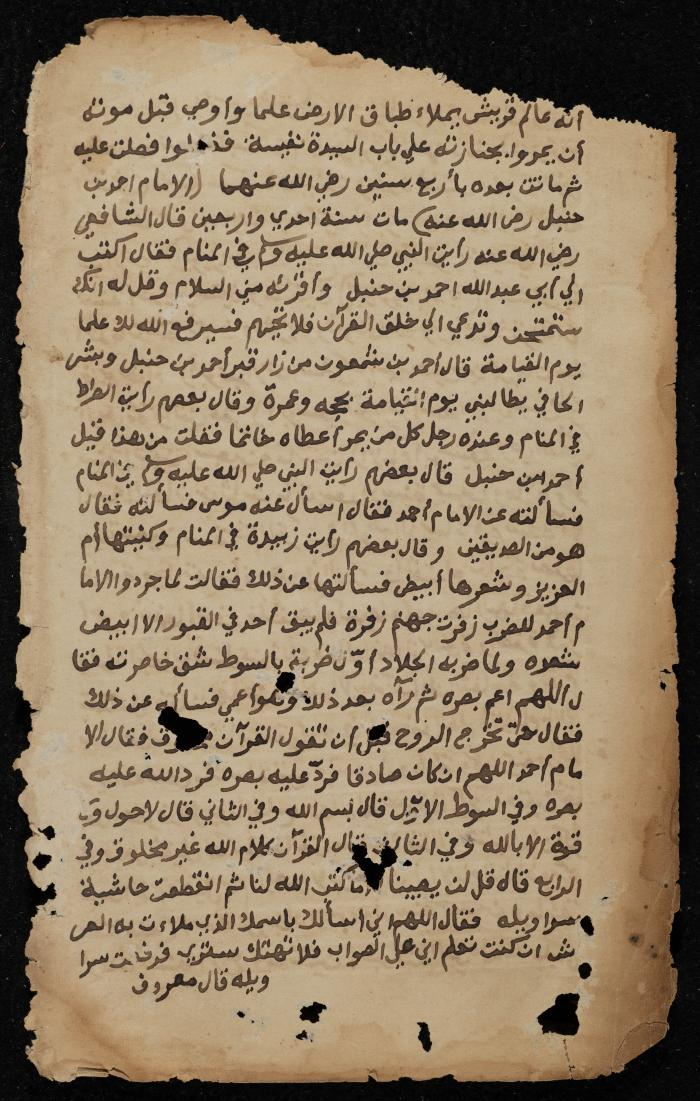 أنه عالم قريش يملاء طباق الارض علما وأوصي قبل موته
أن يمروا بجنازته علي باب السيدة نفيسة ففعلوا فصلت عليه
ثم ماتت بعده بأربع سنين رضي الله عنهما (الامام احمد بن
حنبل رضي الله عنه) مات سنة احدي واربعين قال الشافعي
رضي الله عنه رأيت النبي صلي الله عليه وسلم في المنام فقال اكتب
الي أبي عبد الله احمد بن حنبل وأقرئه مني السلام وقل له انك
ستمتحن وتدعي الي خلق القرآن فلا تجبهم فسيرفع الله لك علما
يوم القيامة قال أحمد بن شمعون من زار قبر أحمد بن حنبل وبشر
الحافي يطالبني يوم القيامة بحجه وعمرة وقال بعضهم رأيت الصراط
في المنام وعنده رجل كل من يمر أعطاه خاتما فقلت من هذا قيل
أحمد ابن حنبل قال بعضهم رأيت النبي صلي الله عليه وسلم في المنام
فسألته عن الامام أحمد فقال اسأل عنه موسي فسألته فقال
هو من الصديقين وقال بعضهم رأيت زبيدة في المنام وكنيتها أم
العزيز وشعرها أبيض فسألتها عن ذلك فقالت لما جردوا الاما
م أحمد للضرب زفرت جهنم زفرة فلم يبق أحد في القبور الا ابيض
شعره ولما ضربه الجلاد أول ضربة بالسوط شق خاصرته فقا
ل اللهم اعم بصره ثم رآه بعد ذلك وهو أعمي فسأله عن ذلك
فقال حتي تخرج الروح قبل أن تقول القرآن مخلوق فقال الا
مام أحمد اللهم ان كان صادقا فرد عليه بصره فرد الله عليه
بصره وفي السوط الاول قال بسم الله وفي الثاني قال لاحول و
قوة الا بالله وفي الثالث قال القرآن كلام الله غير مخلوق وفي
الرابع قال قل لن يصيبنا الا ما كتب الله لنا ثم انقطعت حاشية
سراويله فقال اللهم اني أسألك باسمك الذي ملاءت به العر
ش ان كنت تعلم اني علي الصواب فلا تهتك ستري فرفعت سرا
ويله قال معروف